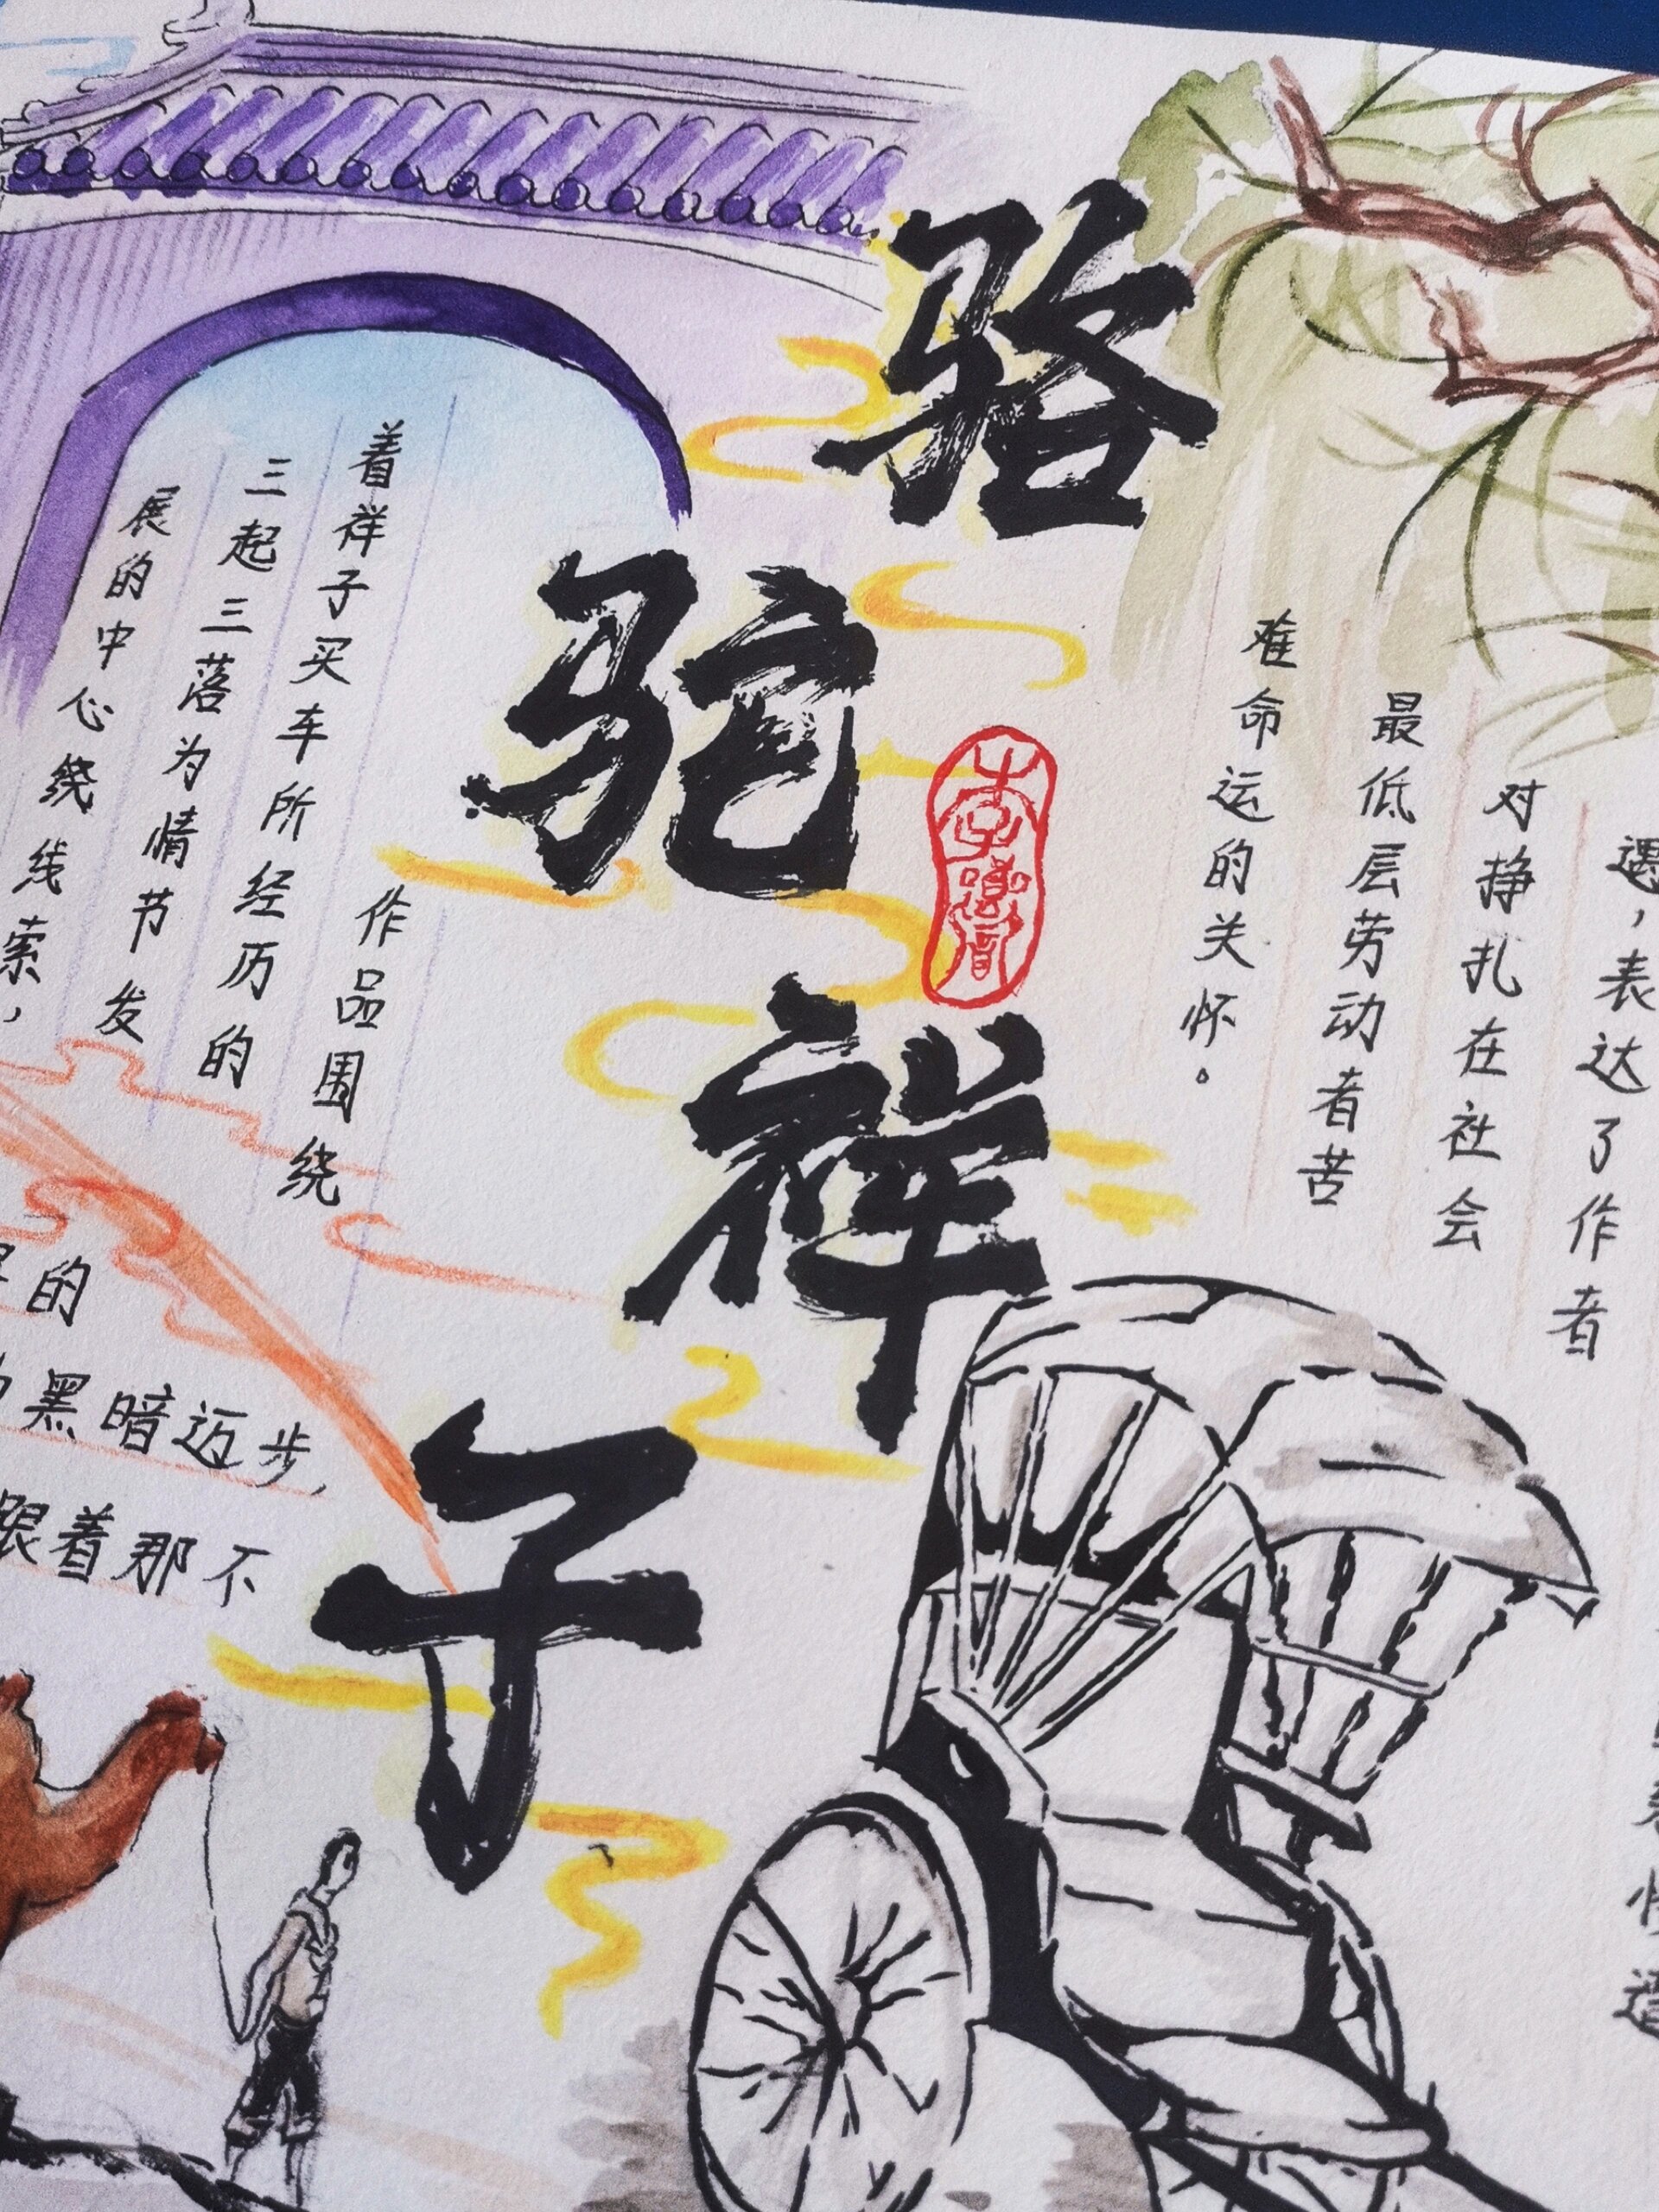 骆驼祥子
遇,表达了作者
对挣扎在社会
最低层劳动者苦
难命运的关怀。
作品围绕
着祥子买车所经历的
三起三落为情节发
展的中心绕线索,
的
黑暗迈步,
跟着那不